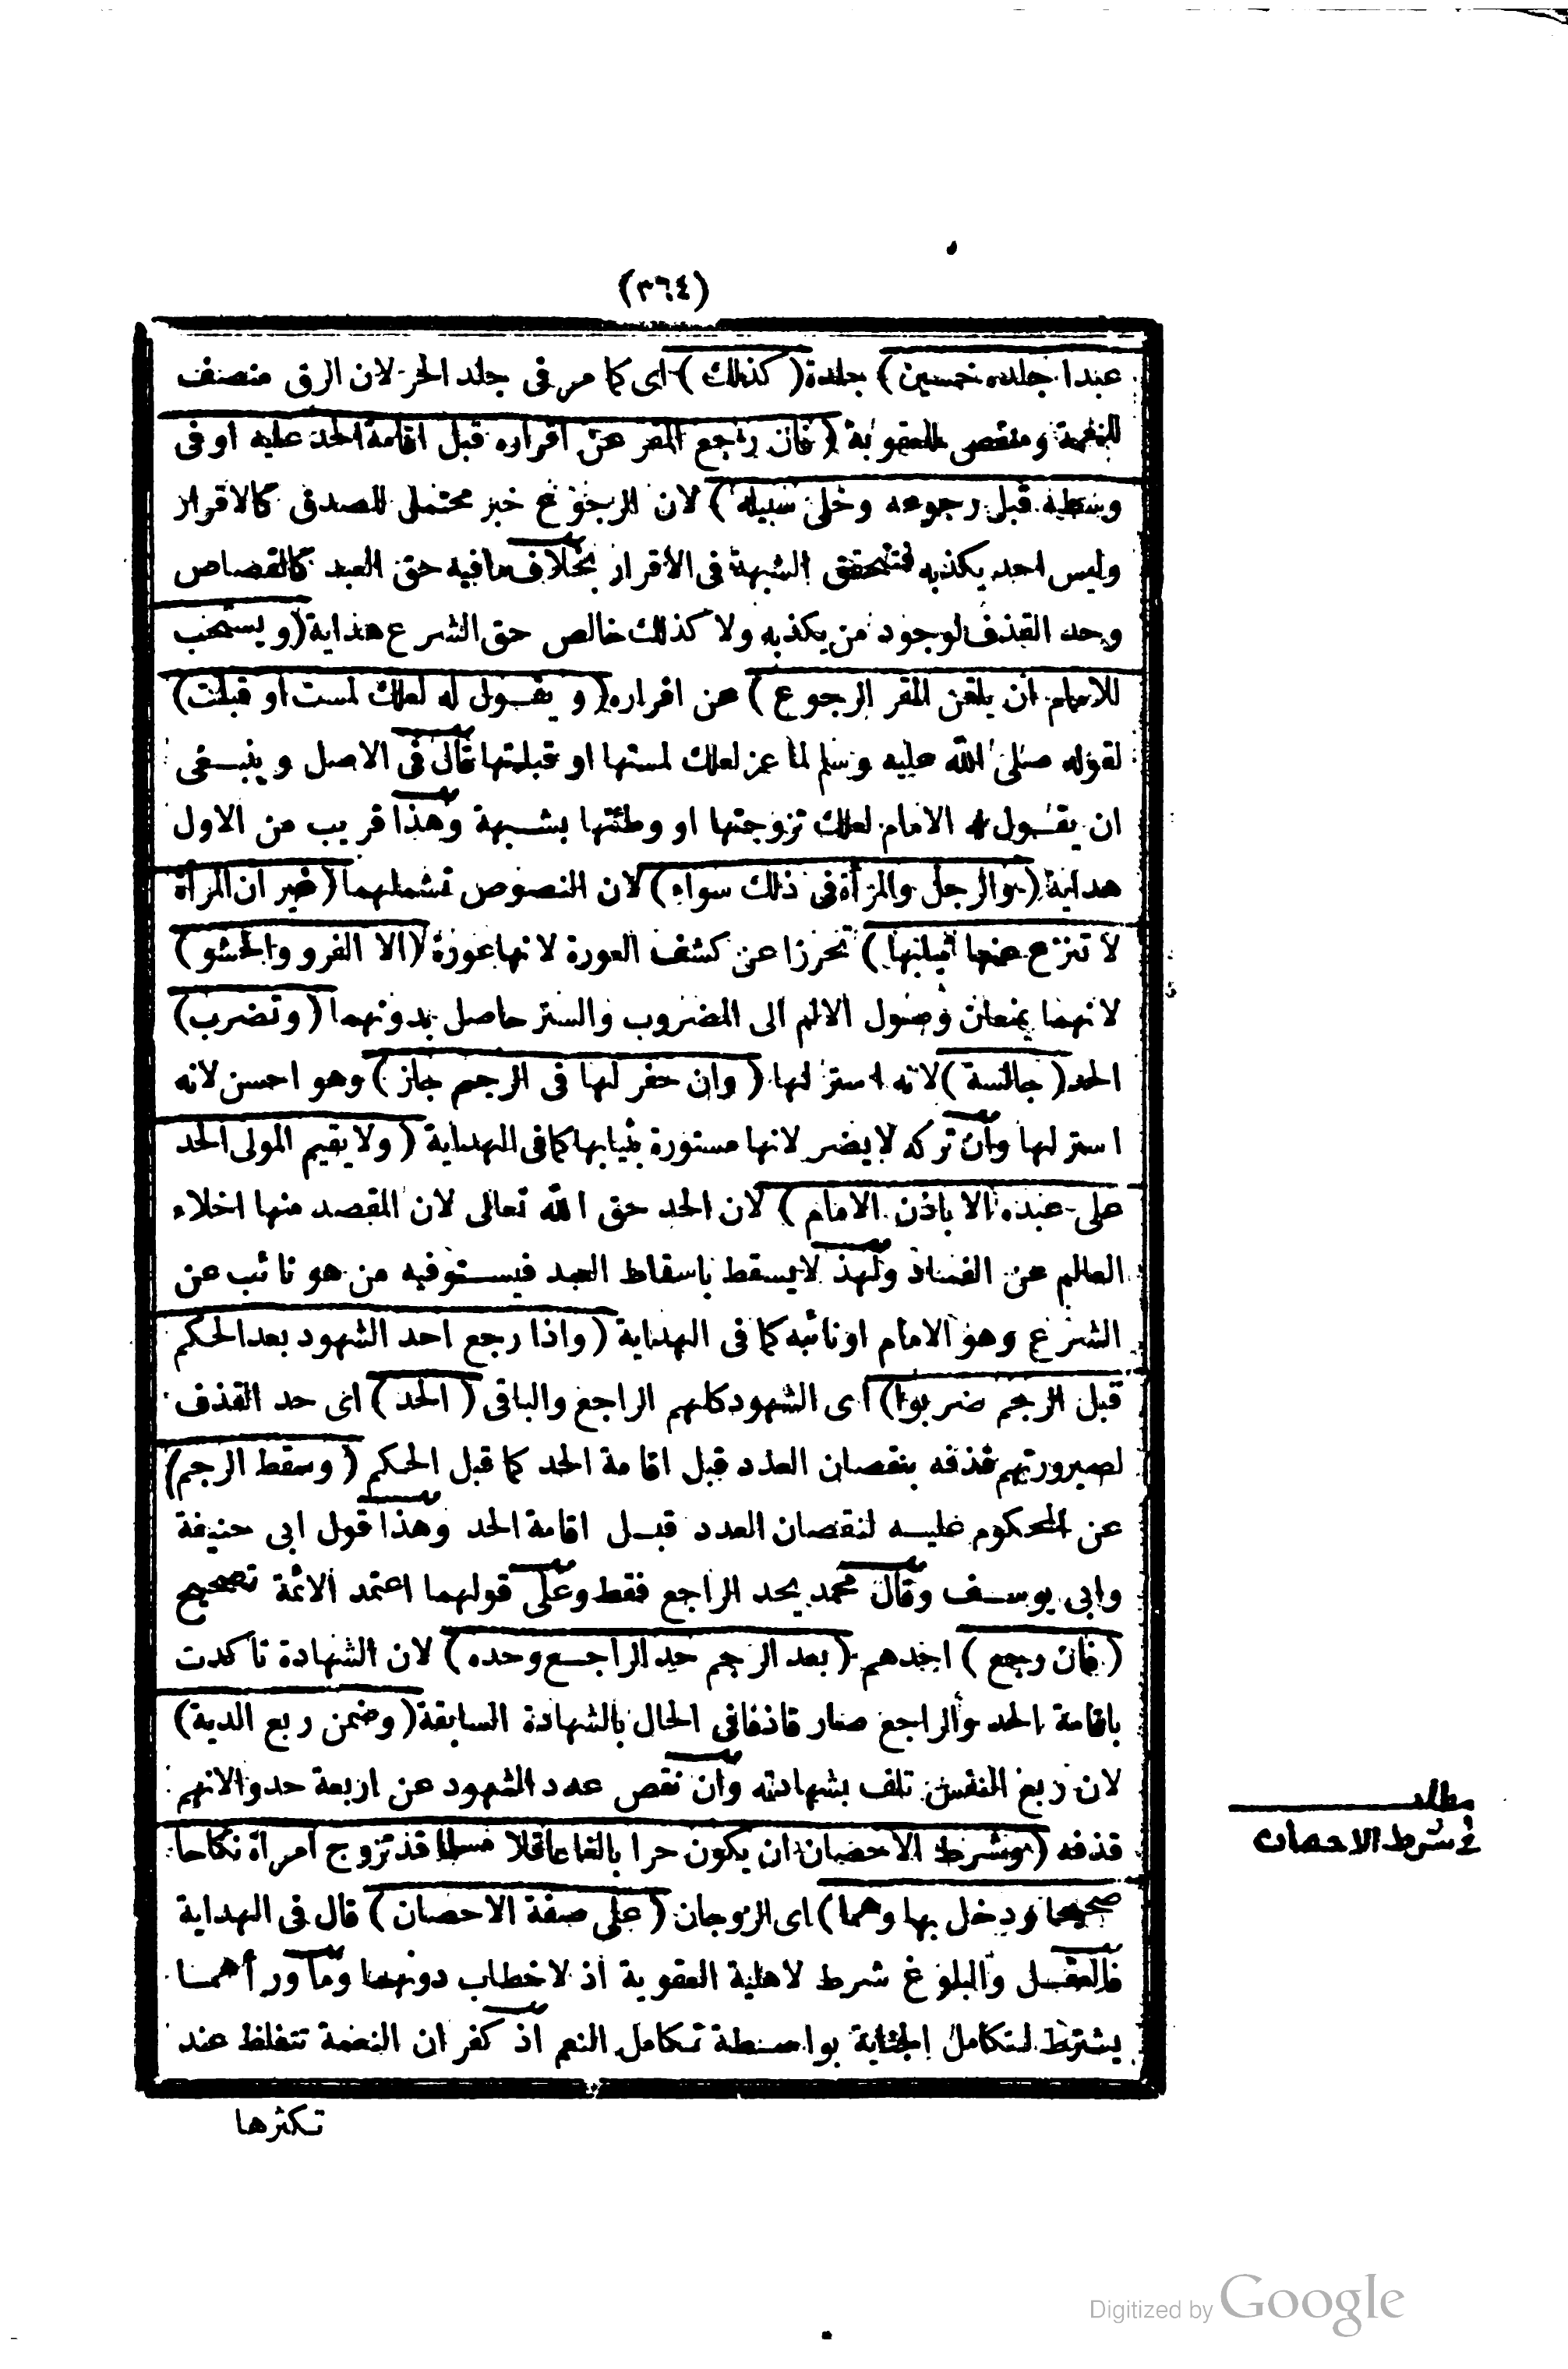 (٣٦٤)
عبدا جلده خمسين) جلدة (كذلك) اى كما مر فى جلد الحر لان الرق منصف
للنعمة ومنقص للعقوبة (فان رجع المقر عن اقراره قبل اقامة الحد عليه اوفى
وسطه قبل رجوعه وخلى سبيله) لان الرجوع خبر محتمل للصدق كالاقرار
وليس احد يكذبه فتتحقق الشبهة فى الاقرار بخلاف مافيه حق العبد كالقصاص
وحد القذف لوجود من يكذبه ولا كذلك خالص حق الشرع هداية (ويستحب
للامام ان يلقن المقر الرجوع) عن اقراره (ويقول له لعلك لمست او قبلت)
لقوله صلى الله عليه وسلم لما عز لعلك لمستها او قبلتها قال فى الاصل وينبغى
ان يقول له الامام لعلك تزوجتها او وطئتها بشبهة وهذا قريب من الاول
هداية (والرجل والمرأة فى ذلك سواء) لان النصوص تشملهما (غير ان المرأة
لا تنزع عنها ثيابها) تحرزا عن كشف العورة لانها عورة (الا الفرو والحشو)
لانهما يمنعان وصول الالم الى المضروب والستر حاصل بدونهما (وتضرب)
الحد (جالسة) لانه استر لها (وان حفر لها فى الرجم جاز) وهو احسن لانه
استر لها وان تركه لايضر لانها مستورة بثيابها كما فى الهداية (ولا يقيم المولى الحد
على عبده الا باذن الامام) لان الحد حق الله تعالى لان المقصد منها اخلاء
العالم عن الفساد ولهذ لايسقط باسقاط العبد فيستوفيه من هو نائب عن
الشرع وهو الامام او نائبه كما فى الهداية (واذا رجع احد الشهود بعد الحكم
قبل الرجم ضربوا) اى الشهود كلهم الراجع والباقى (الحد) اى حد القذف
لصيرورتهم قذفه بنقصان العدد قبل اقامة الحد كما قبل الحكم (وسقط الرجم)
عن المحكوم عليه لنقصان العدد قبل اقامة الحد وهذا قول ابى حنيفة
وابى يوسف وقال محمد يحد الراجع فقط وعلى قولهما اعتمد الائمة تصحيح
(فان رجع) احدهم (بعد الرجم حد الراجع وحده) لان الشهادة تاكدت
باقامة الحد والراجع صار قاذفا فى الحال بالشهادة السابقة (وضمن ربع الدية)
لان ربع النفس تلف بشهادته وان نقص عدد الشهود عن اربعة حدوا لانهم
قذفه (وشرط الاحصان ان يكون حرا بالغا عاقلا مسلما قد تزوج امرأة نكاحا
صحيحا ودخل بها وهما) اى الزوجان (على صفة الاحصان) قال فى الهداية
فالعقل والبلوغ شرط لاهلية العقوبة اذ لاخطاب دونهما وما ورأهما
يشترط لتكامل الجناية بواسطة تكامل النعم اذ كفران النعمة تتغلظ عند
تكثرها
مطلب
فى شرط الاحصان
Digitized by Google